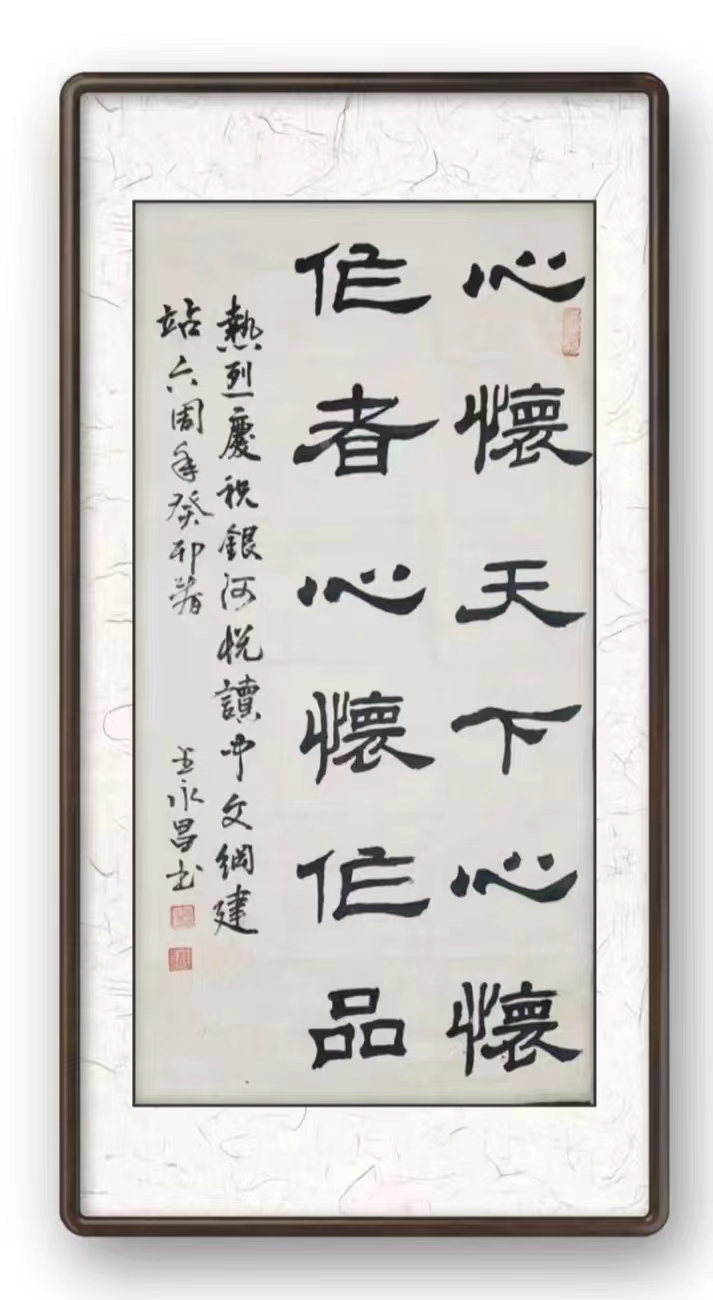 心懷天下心懷
作者心懷作品
熱烈慶祝銀河悅讀中文網建
站六周年癸卯春
王永昌书